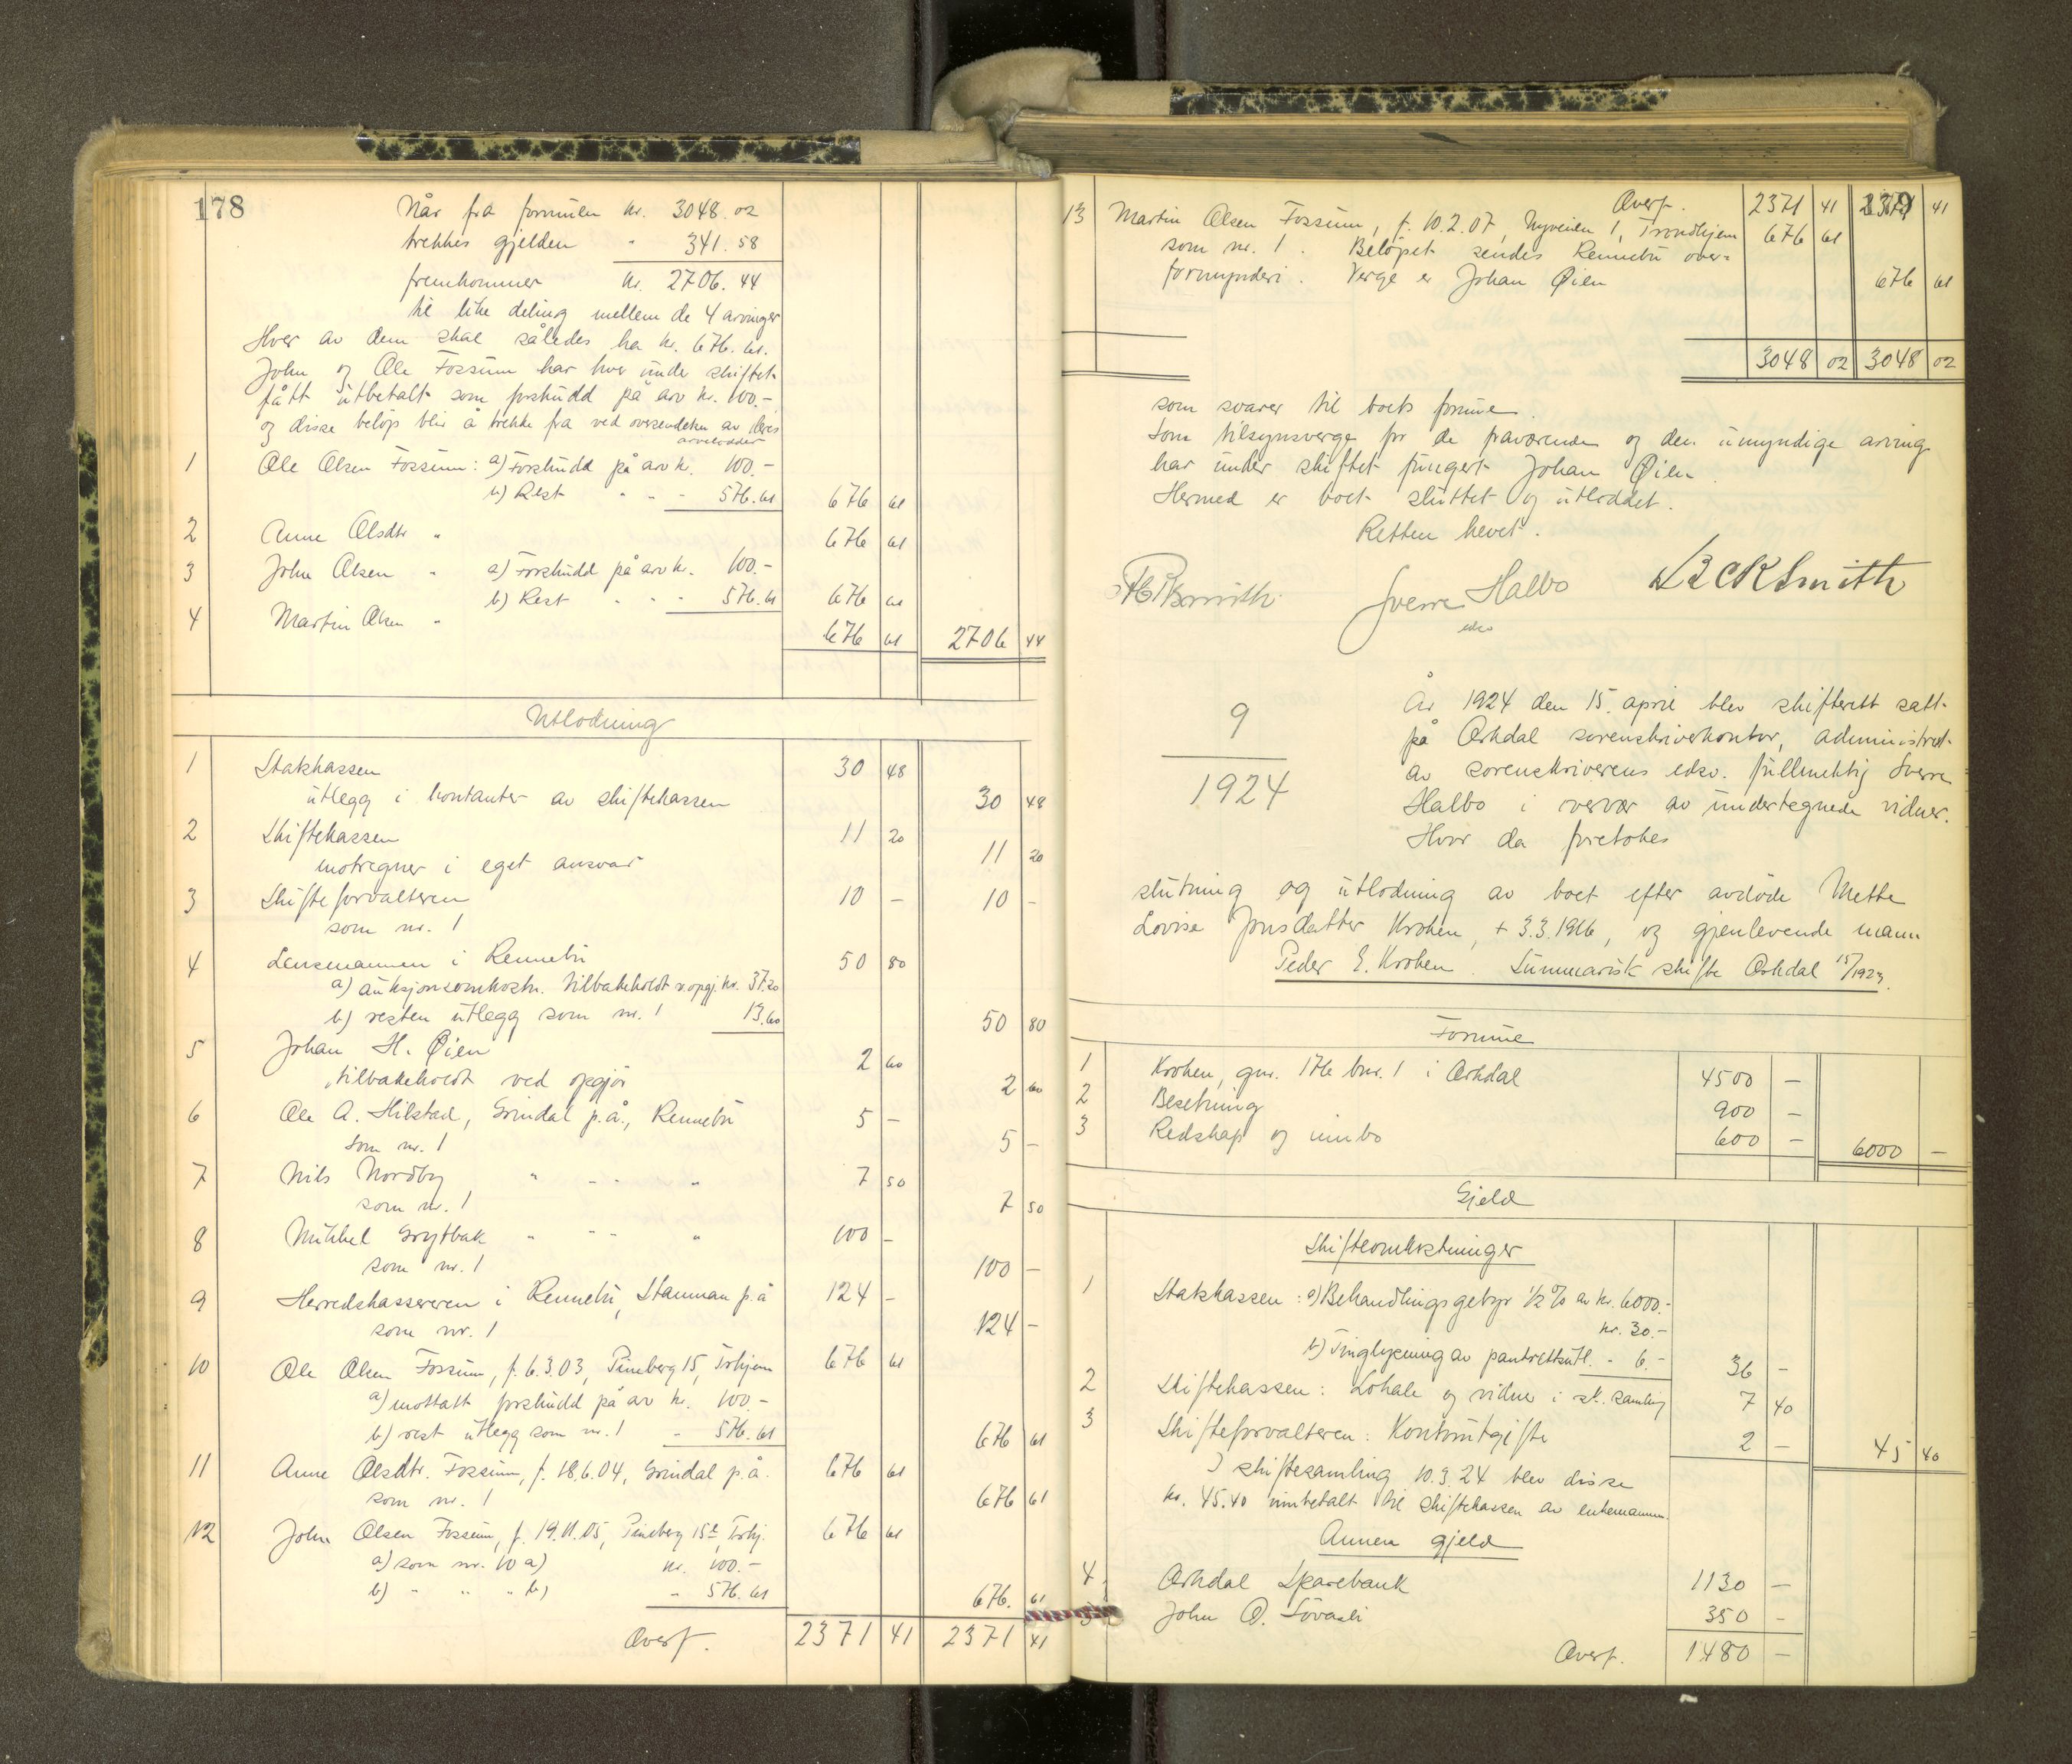 178
Når fra formuen kr. 3048.02
trekkes gjelden " 341.58
fremkommer kr. 2706.44
til like deling mellem de 4 arvinger
Hver av dem skal således ha kr. 676.61.
John og Ole Fossum har hver under skiftet
fått utbetalt som forskudd på arv kr. 100.-
og disse beløp blir å trekke fra ved oversendelsen av deres
arvelodder
1 Ole Olsen Fossum: a) Forskudd på arv kr. 100.-
b) Rest " " - 576.61 676 61
2 Anne Olsdtr " 676 61
3 John Olsen " a) Forskudd på arv kr. 100.-
b) Rest " " - 576.61 676 61
4 Martin Olsen " 676 61 2706 44
Utlodning
1 Statskassen 30 48
utlegg i kontanter av skiftekassen 30 48
2 Skiftekassen 11 20
motregner i eget ansvar 11 20
3 Skifteforvalteren 10 - 10 -
som nr. 1
4 Lensmannen i Rennebu 50 80
a) auksjonsomkostn. tilbakeholdt v. opgj. kr. 37.20
b) resten utlegg som nr. 1 13.60 50 80
5 Johan H. Øien 2 60
tilbakeholdt ved opgjør 2 60
6 Ole A. Hilstad, Grindal p.å., Rennebu 5 -
som nr. 1 5 -
7 Nils Nordby " " - " 7 50
som nr. 1 7 50
8 Mikkel Grytbak " " - " 100 -
som nr. 1 100 -
9 Herredskassereren i Rennebu, Stamnan p.å 124 -
som nr. 1 124 -
10 Ole Olsen Fossum, f. 6.3.03, Pineberg 15, Trhjem 676 61
a) mottatt forskudd på arv kr. 100.-
b) rest utlegg som nr. 1 - 576.61 676 61
11 Anne Olsdtr. Fossum, f. 18.6.04, Grindal p.å. 676 61
som nr. 1 676 61
12 John Olsen Fossum, f. 19.11.05, Pineberg 15 Trhj. 676 61
a) som nr. 10 a) kr. 100.-
b) " " " b) " 576.61 676. 61
Overf. 2371 41 2371 41
Overf. 2371 41 2371 41
13 Martin Olsen Fossum, f. 10.2.07, Nyveien 1, Trondhjem 676 61
som nr. 1. Beløpet sendes Rennebu over=
formynderi. Verge er Johan Øien 676 61
3048 02 3048 02
som svarer til boets formue.
Som tilsynsverge for de fraværende og den umyndige arving
har under skiftet fungert Johan Øien.
Hermed er boet sluttet og utloddet.
Retten hevet.
Sverre Halbo
edsv
9
1924
År 1924 den 15. april blev skifterett satt
på Orkdal sorenskriverkontor, administrert
av sorenskriverens edsv. fullmektig Sverre
Halbo i overvær av undertegnede vidner.
Hvor da foretokes
slutning og utlodning av boet efter avdøde Mette
Lovise Jonsdatter Kroken, + 3.3.1916, og gjenlevende mann
Peder E. Kroken. Summarisk skifte Orkdal 15/1923.
Formue
1 Kroken, gnr. 176 bnr. 1 i Orkdal 4500 -
2 Besetning 900 -
3 Redskap og innbo 600 - 6000 -
Gjeld
Skifteomkostninger
1 Statskassen: a) Behandlingsgebyr 1/2 % av kr. 6000.-
kr. 30.-
b) Tinglysning av pantrettsutl. - 6.- 36 -
2 Skiftekassen: Lokale og vidner i sk. samling 7 40
3 Skifteforvalteren: Kontorutgifte 2 - 45 40
I skiftesamling 10.3.24 blev disse
kr. 45.40 innbetalt til skiftekassen av enkemannen.
Annen gjeld
4 Orkdal Sparebank 1130 -
5 John O. Sovasli 350 -
Overf. 1480 -